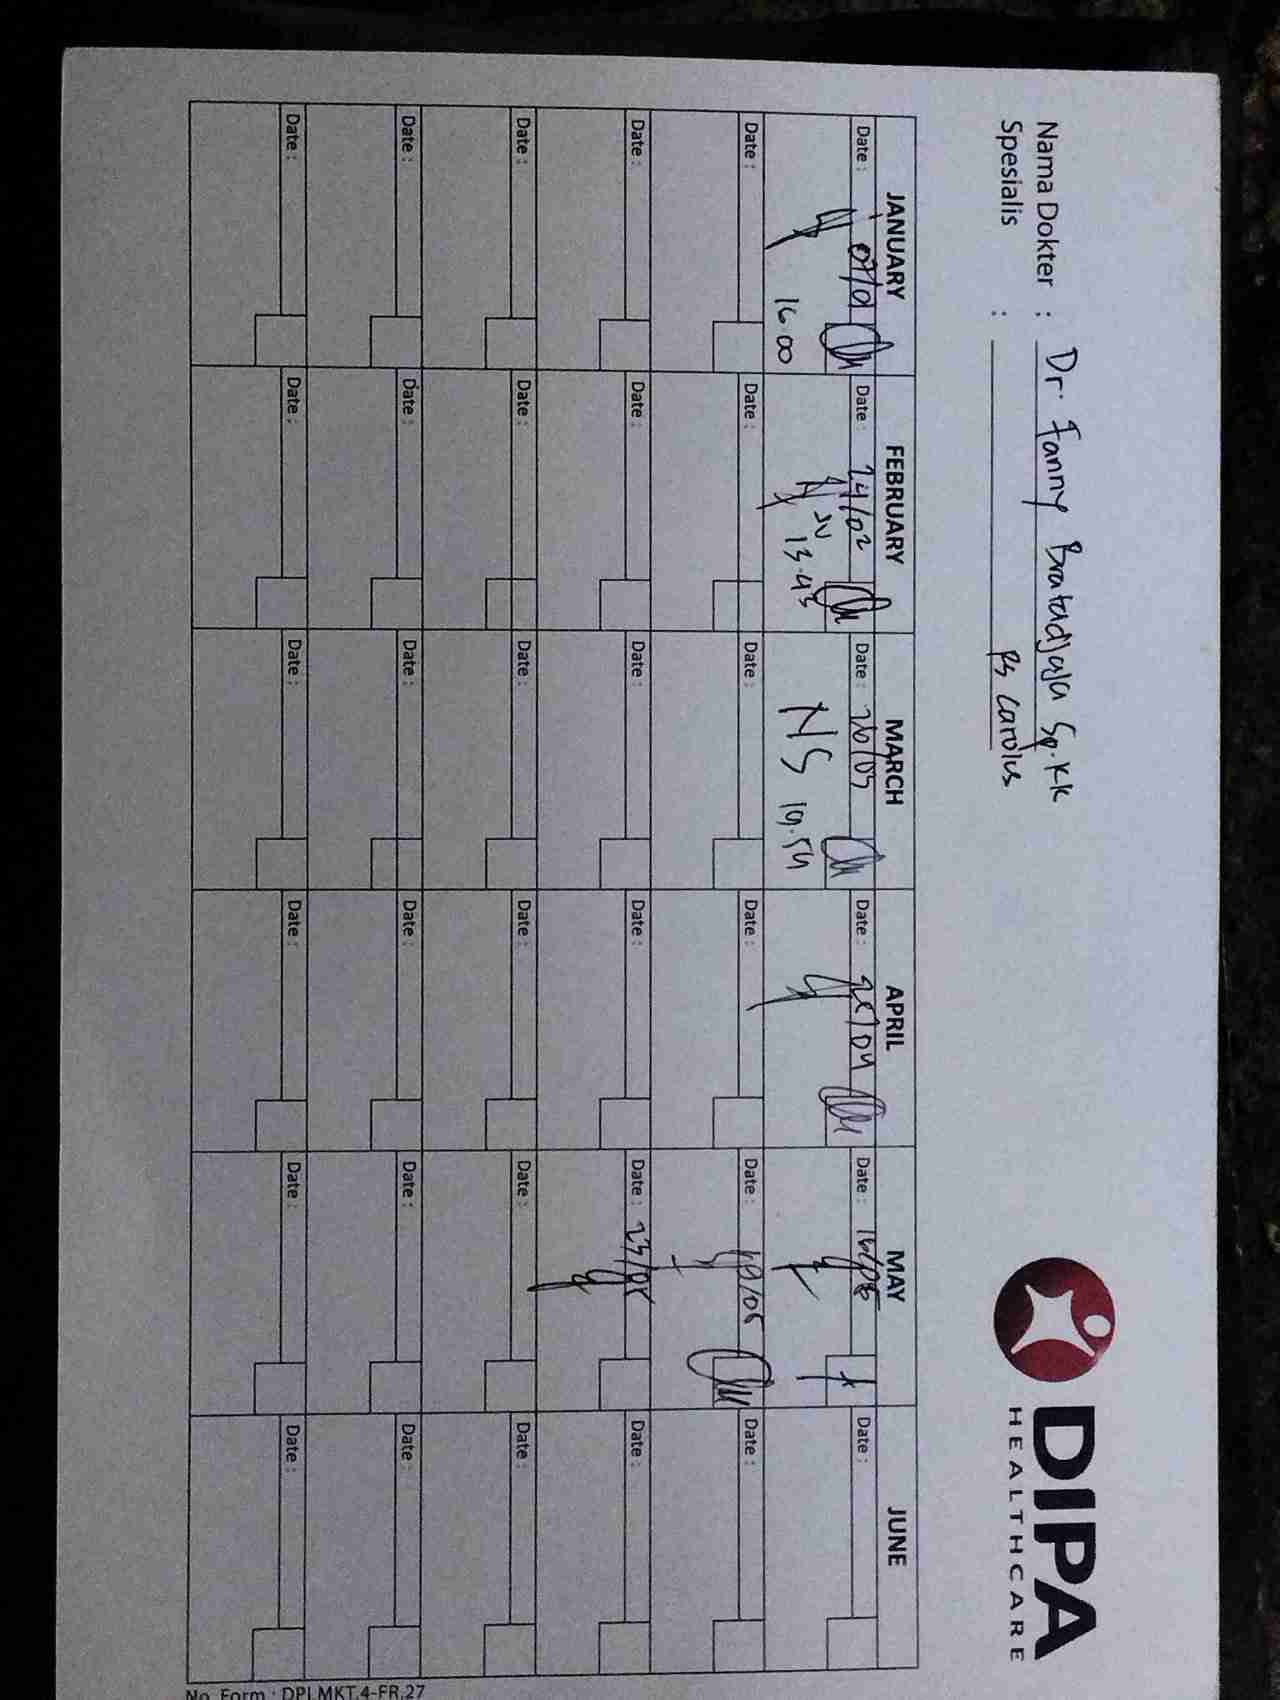 DIPA
HEALTHCARE
Nama Dokter : Dr. Fanny Bratadjaja Sp.KK
Spesialis : RS Carolus
JANUARY FEBRUARY MARCH APRIL MAY JUNE
Date : Date : 24/02 Date : Date : Date : Date :
16.00 13.45 NS 19.54
Date : Date : Date : Date : Date : Date :
Date : Date : Date : Date : Date : Date :
Date : Date : Date : Date : Date : Date :
Date : Date : Date : Date : Date : Date :
Date : Date : Date : Date : Date : Date :
No. Form : DPI.MKT.4-FR.27